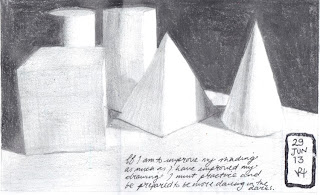 If I am to improve my shading
as much as I have improved my
drawing I must practice and
be prepared to be more daring in the
darks.
29
JUN
13